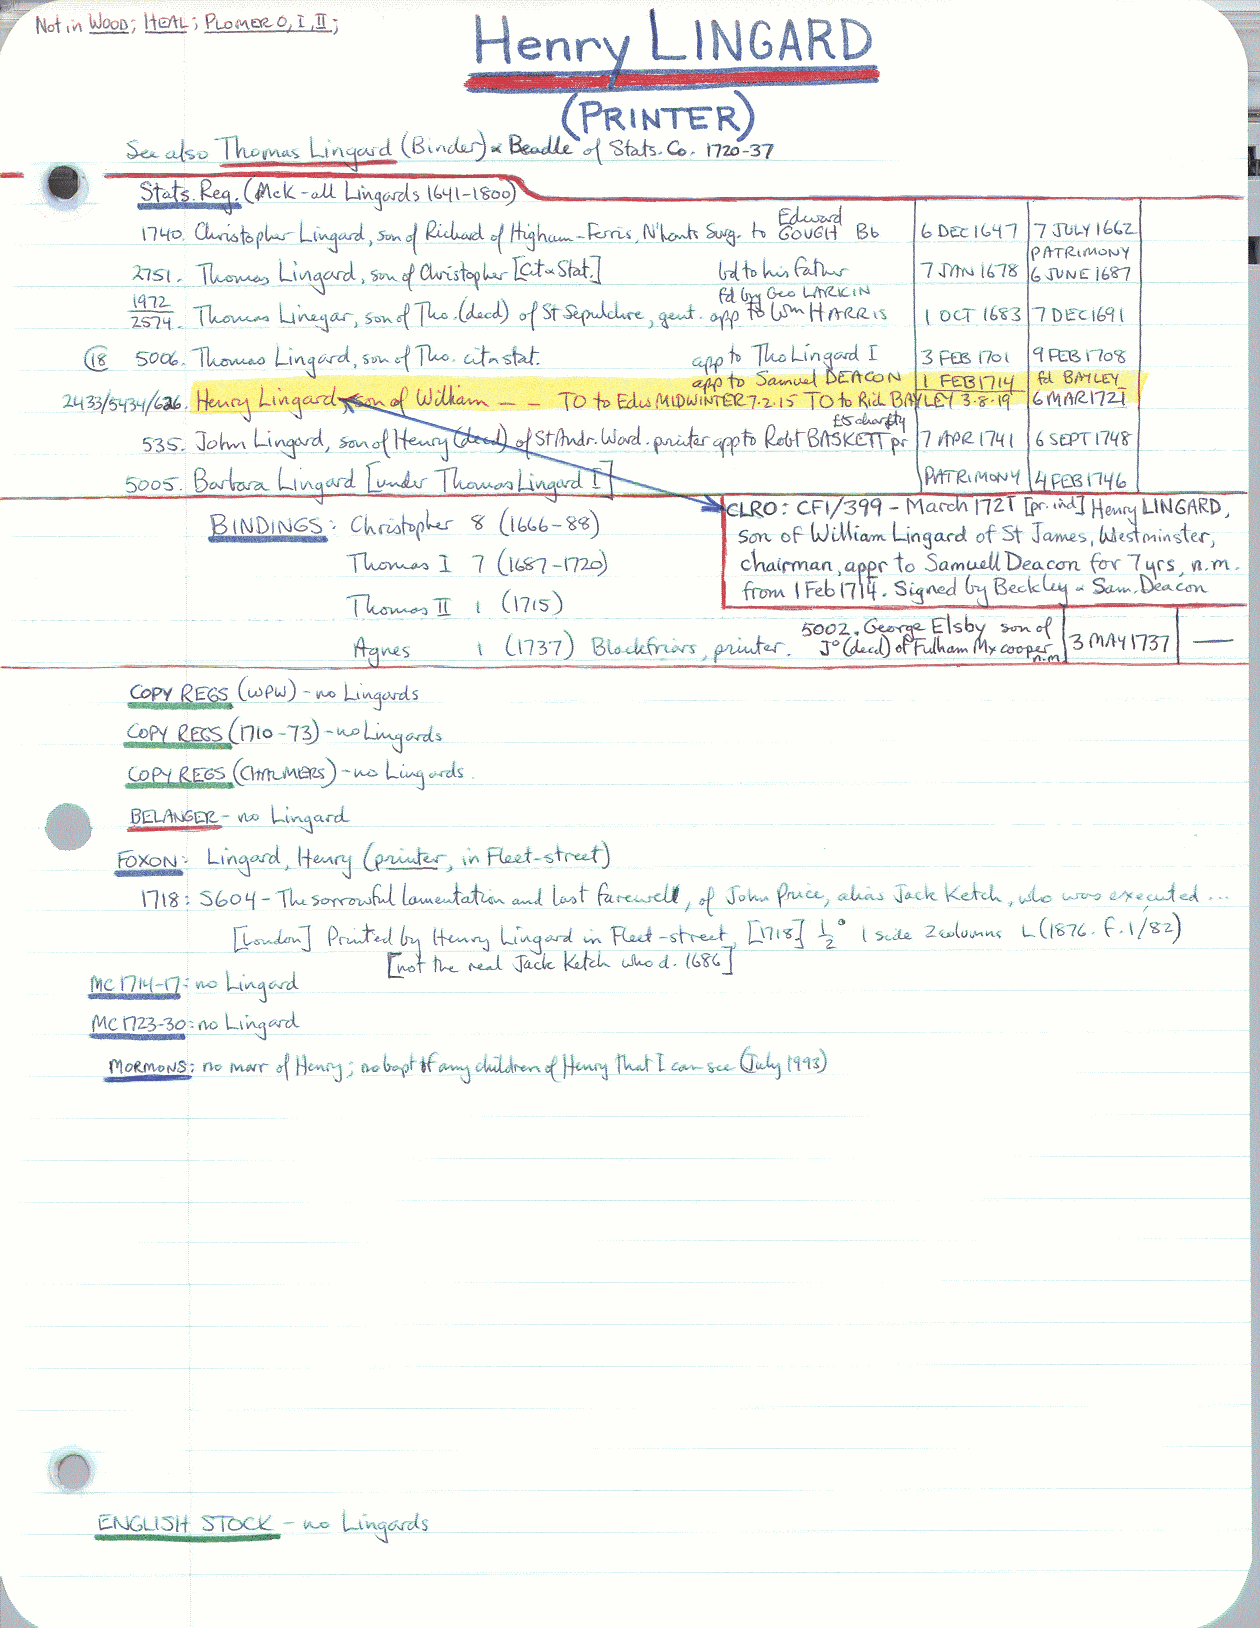 Not in WOOD; HEAL; PLOMER O, I, II;
Henry LINGARD
(PRINTER)
See also Thomas Lingard (Binder) & Beadle of Stats. Co. 1720-37
Stats. Reg. (McK - all Lingards 1641-1800)
1740. Christopher Lingard, son of Richard of Higham-Ferris, N'hants Surg. to Edward GOUGH Bb 6 DEC 1647 7 JULY 1662
2751. Thomas Lingard, son of Christopher [Cit & Stat.] bd to his father 7 JAN 1678 PATRIMONY 6 JUNE 1687
fd by Geo LARKIN
1972/2574. Thomas Linegar, son of Tho. (decd) of St Sepulchre, gent. app to Wm HARRIS 1 OCT 1683 7 DEC 1691
(18) 5006. Thomas Lingard, son of Tho. cit & stat. app to Tho Lingard I 3 FEB 1701 9 FEB 1708
app to Samuel DEACON 1 FEB 1714 fd BAYLEY
2433/5434/626. Henry Lingard, son of William - - TO to Edw MIDWINTER 7.2.15 TO to Rich BAYLEY 3.8.19 6 MAR 1721
£5 charity
535. John Lingard, son of Henry (decd) of St Andr. Ward. printer app to Robt BASKETT pr 7 APR 1741 6 SEPT 1748
5005. Barbara Lingard [under Thomas Lingard I] PATRIMONY 4 FEB 1746
CLRO: CF1/399 - March 1721 [pr. ind] Henry LINGARD,
son of William Lingard of St James, Westminster,
chairman, appr to Samuell Deacon for 7 yrs, n.m.
from 1 Feb 1714. Signed by Beckley & Sam. Deacon
BINDINGS: Christopher 8 (1666-88)
Thomas I 7 (1687-1720)
Thomas II 1 (1715)
Agnes 1 (1737) Blackfriars, printer. 5002. George Elsby son of
Jo (decd) of Fulham Mx cooper n.m. 3 MAY 1737 —
COPY REGS (WPW) - no Lingards
COPY REGS (1710-73) - no Lingards
COPY REGS (CHALMERS) - no Lingards.
BELANGER - no Lingard
FOXON: Lingard, Henry (printer, in Fleet-street)
1718: S604 - The sorrowful lamentation and last farewell, of John Price, alias Jack Ketch, who was executed ...
[London] Printed by Henry Lingard in Fleet-street, [1718] ½° 1 side 2 columns L (1876. f. 1/82)
[not the real Jack Ketch who d. 1686]
MC 1714-17: no Lingard
MC 1723-30: no Lingard
MORMONS: no marr of Henry; no bapt of any children of Henry that I can see (July 1993)
ENGLISH STOCK - no Lingards